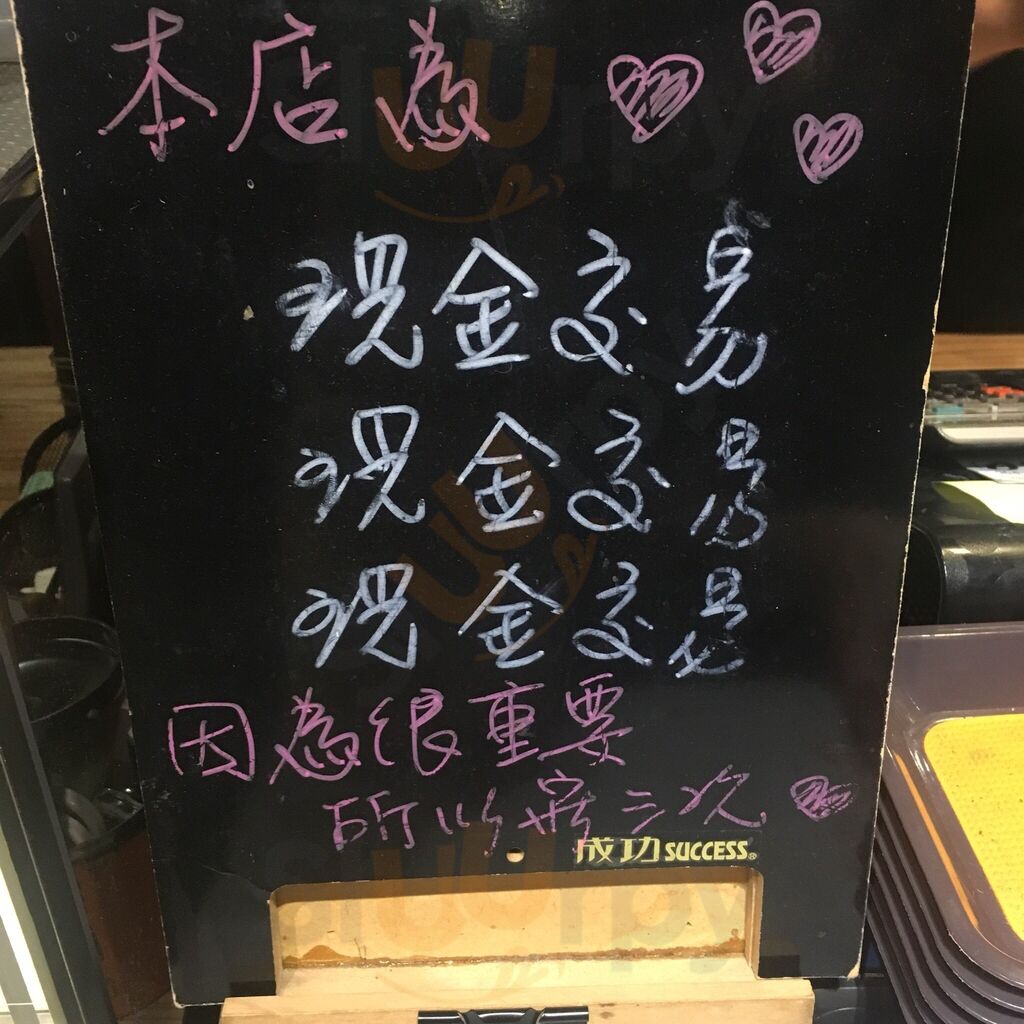 本店為
現金交易
現金交易
現金交易
因為很重要
所以寫三次
成功 SUCCESS®